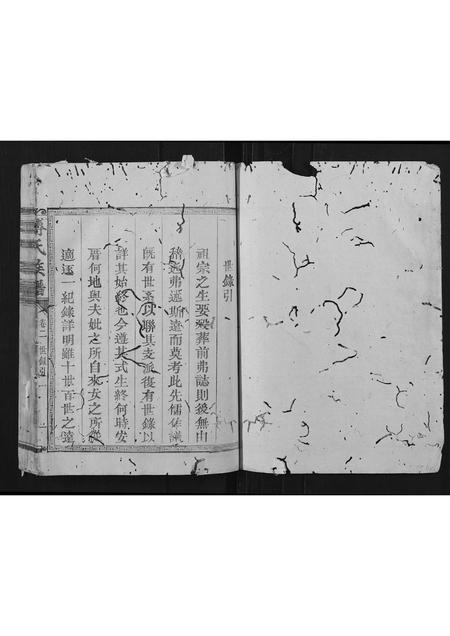 世錄引
祖宗之生娶歿葬前弗誌則後無由
稽近弗述斯遠而莫考此先儒作譜
既有世系以聯其支派復有世錄以
詳其始終也今遵其式生終何時安
厝何地與夫妣之所自來女之所從
適逐一紀錄詳明雖十世百世之遠
氏族譜
卷一
世錄引
一